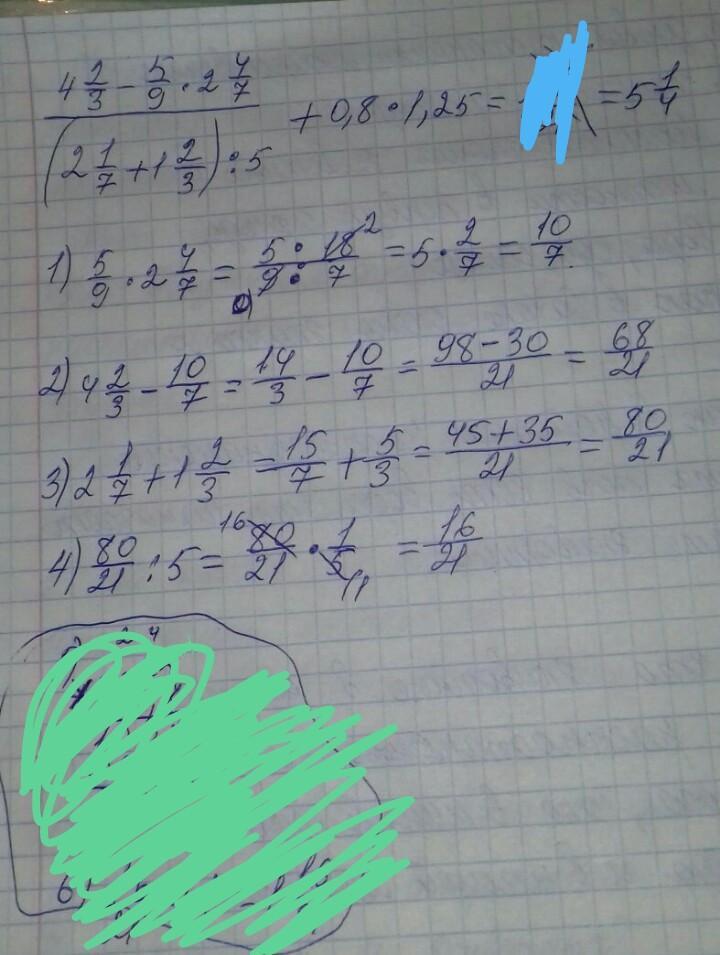 (4 2/3 − 5/9 · 2 4/7) / ((2 1/7 + 1 2/3) : 5) + 0,8 · 1,25 = = 5 1/4
1) 5/9 · 2 4/7 = 5 · 18 2 / 9 · 7 = 5 · 2/7 = 10/7.
2) 4 2/3 − 10/7 = 14/3 − 10/7 = (98 − 30)/21 = 68/21
3) 2 1/7 + 1 2/3 = 15/7 + 5/3 = (45 + 35)/21 = 80/21
4) 80/21 : 5 = 16 80/21 · 1/5 1 = 16/21